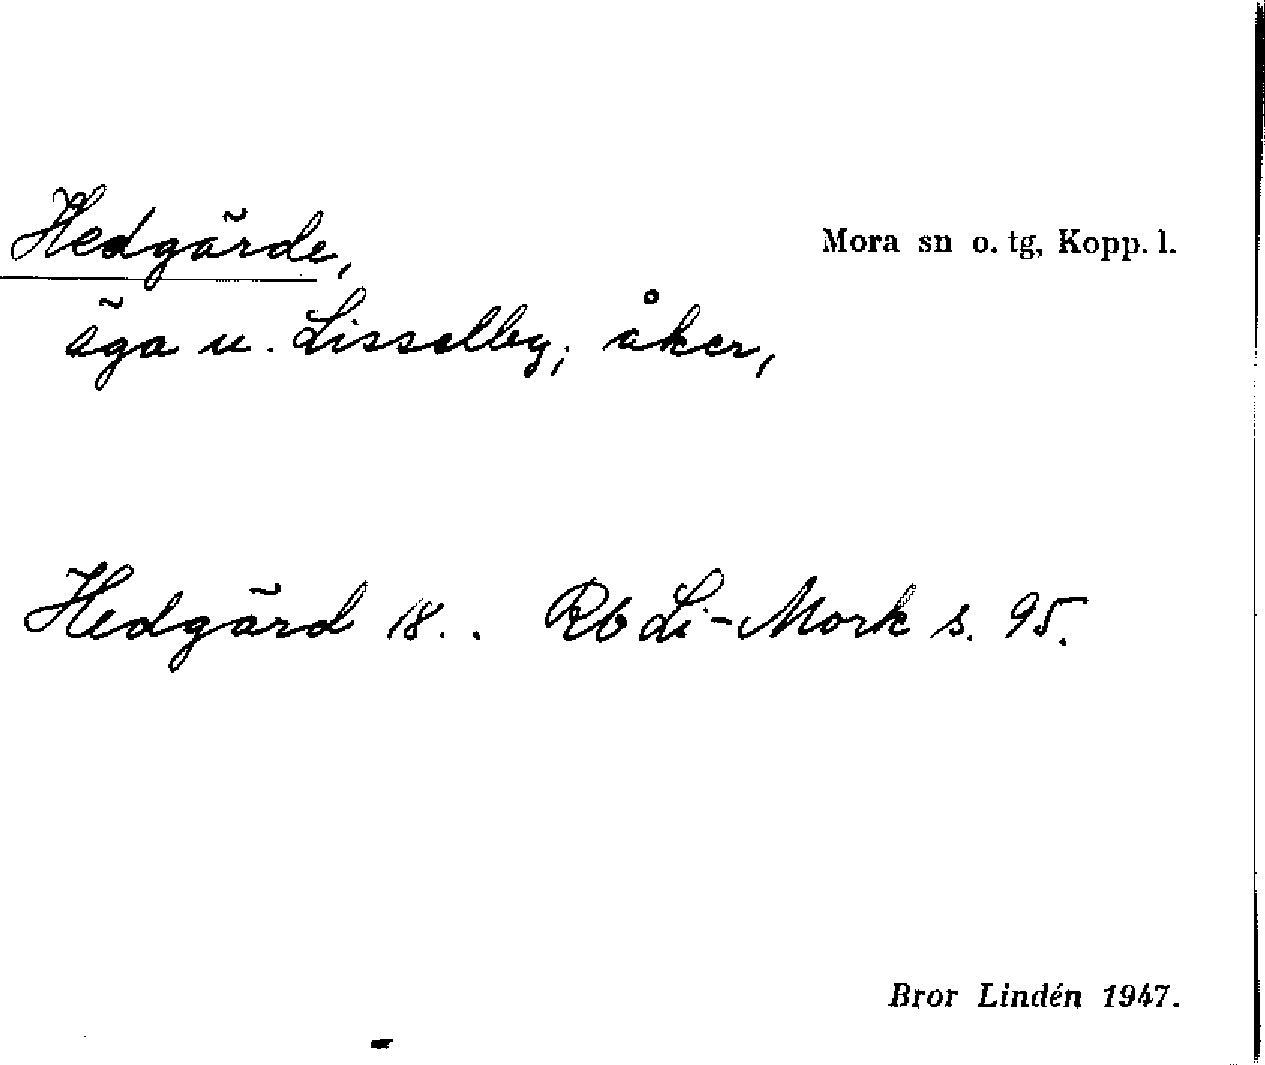 Hedgärde,
Mora sn o. tg, Kopp. l.
äga u. Lisselby; åker,
Hedgärd 18.. Rb Li-Mork s. 95.
Bror Lindén 1947.